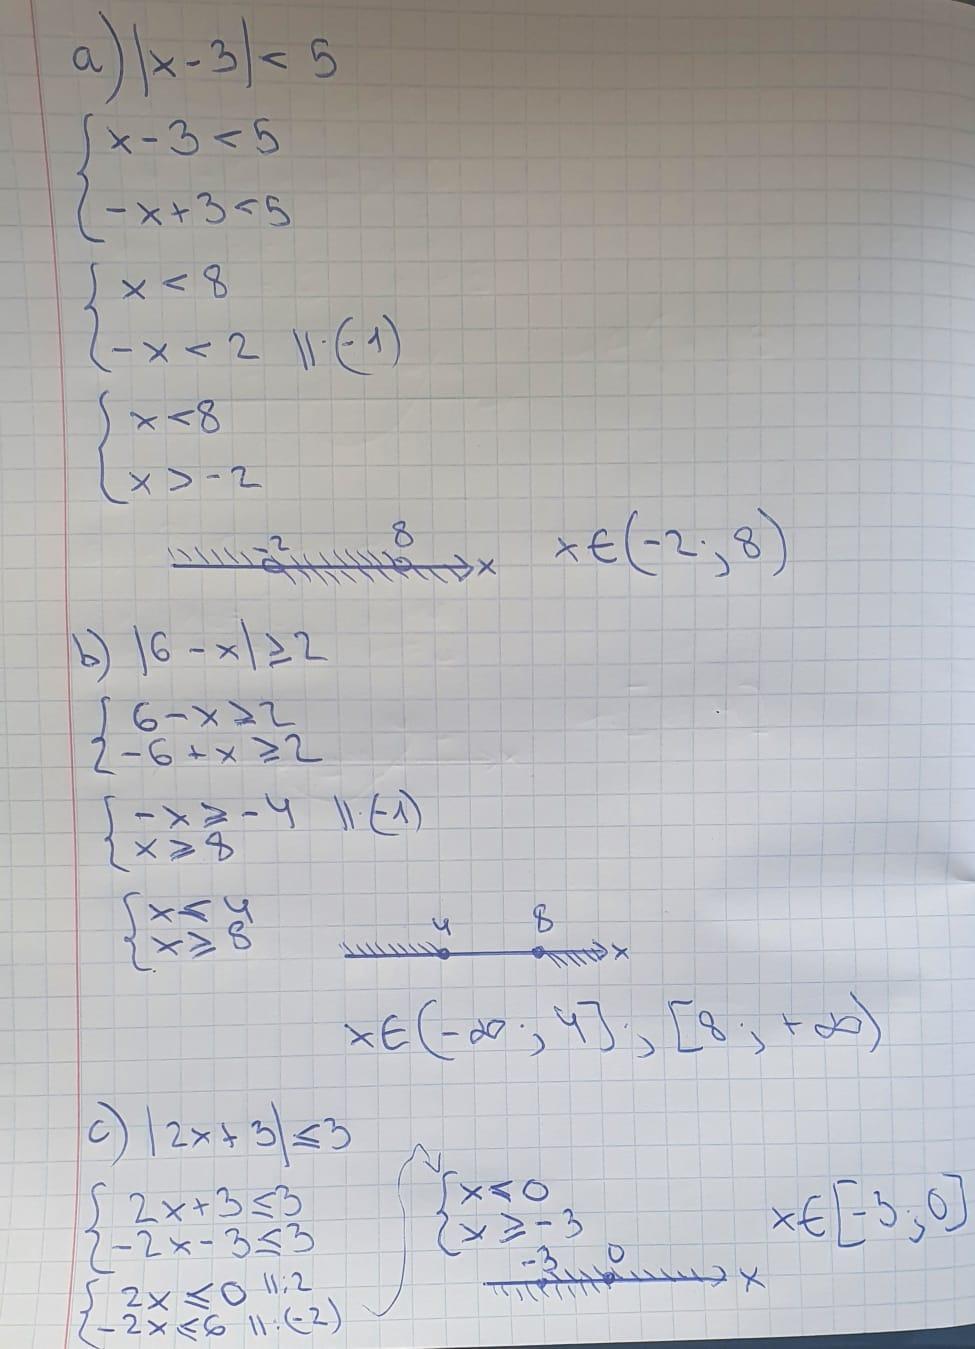 a) |x-3| < 5
{ x-3 < 5
-x+3 < 5
{ x < 8
-x < 2 ||·(-1)
{ x < 8
x > -2
-2 8 x x∈(-2; 8)
b) |6-x| ≥ 2
{ 6-x ≥ 2
-6+x ≥ 2
{ -x ≥ -4 ||·(-1)
x ≥ 8
{ x ≤ 4
x ≥ 8
4 8 x
x∈(-∞; 4]; [8; +∞)
c) |2x+3| ≤ 3
{ 2x+3 ≤ 3
-2x-3 ≤ 3
{ 2x ≤ 0 ||:2
-2x ≤ 6 ||:(-2)
{ x ≤ 0
x ≥ -3
-3 0 x
x∈[-3; 0]